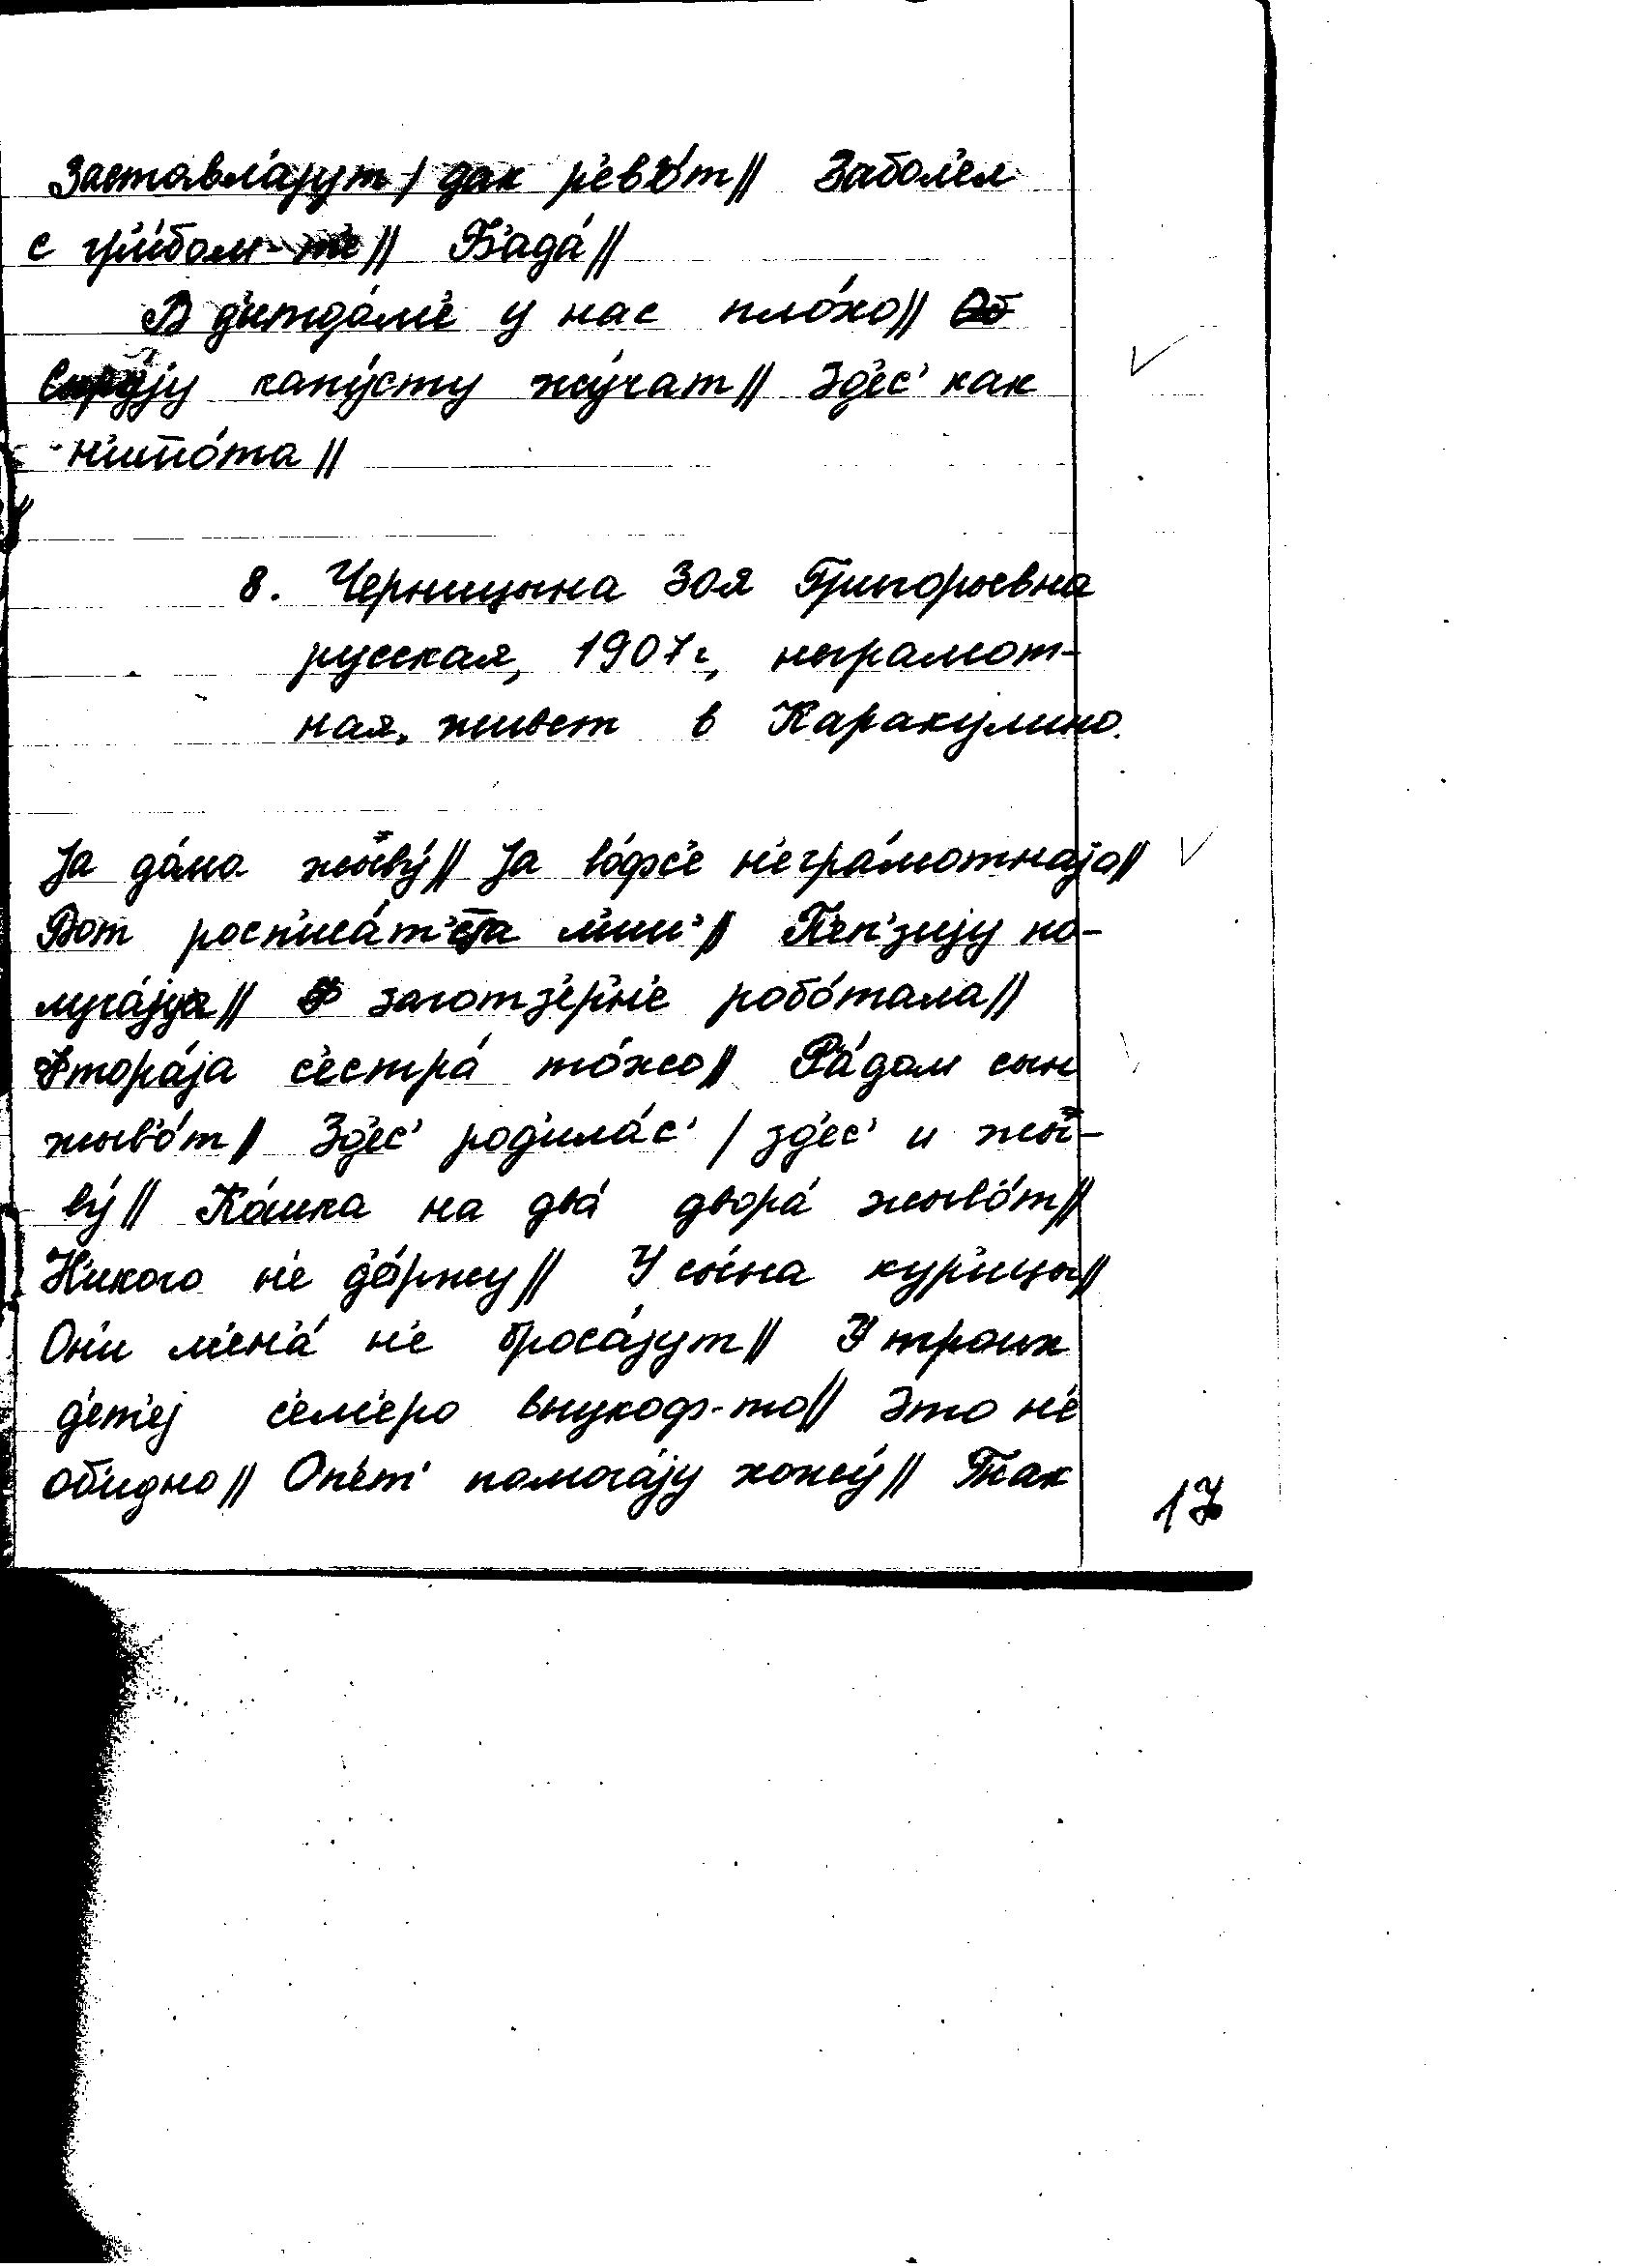 Заставл'а́јут / дак р'ев'о́т // Забол'ел
с гр'и́бом- // Б'ада́ //
В д'итдо́м'е у нас пло́хо //
капу́сту жу́чат // Зд'ес' как
8. Черницына Зоя Григорьевна
русская, 1907 г., неграмот-
ная, живет в Каракулино.
Ја до́ма жыву́ // Ја во́фс'е н'егра́мотнаја //
Вот росп'иса́т' // П'ен'з'ију по-
луча́ју // заготз'ерн'е робо́тала //
Фтора́ја с'естра́ то́жо // Р'а́дом сын
жыв'о́т // Зд'ес' род'ила́с' / зд'ес' и жы-
ву́ // Ко́шка на два́ двора́ жыв'о́т //
Н'икого н'е д'о́ржу // У сы́на кур'ицы //
Он'и м'ен'а́ н'е броса́јут // У троих
д'ет'еј с'ем'еро внукоф-то // Это н'е
об'идно // Оп'ет' помога́ју хожу́ // Так
17